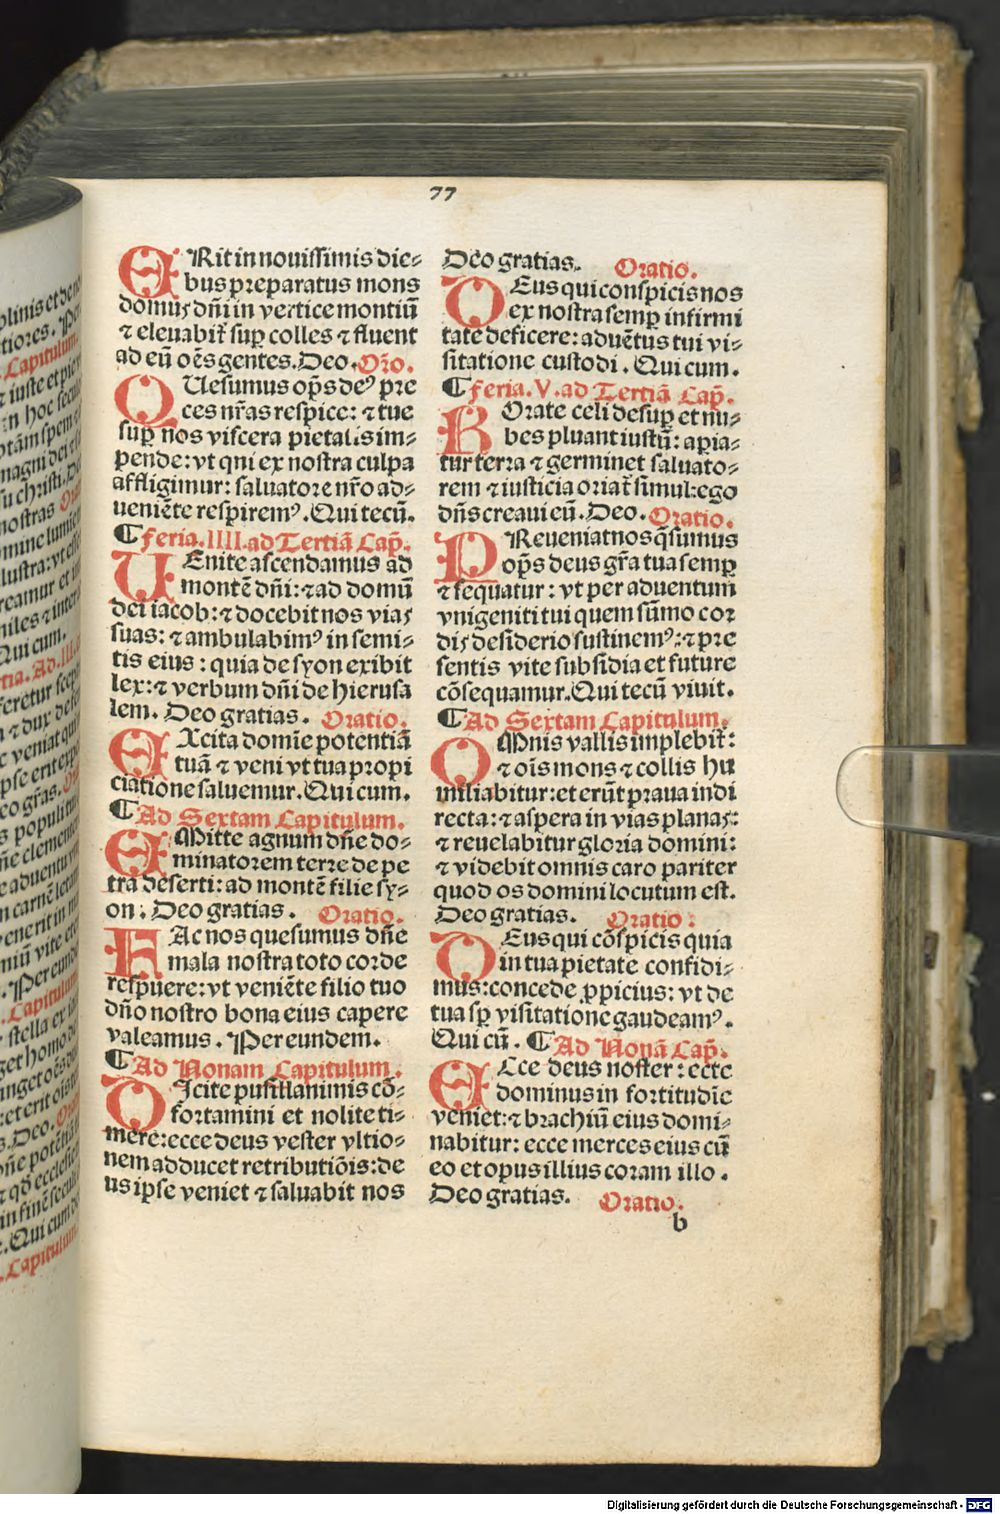 77
ERit in nouissimis die⸗
bus preparatus mons
domus dñi in vertice montiū
⁊ eleuabit᷑ suꝑ colles ⁊ fluent
ad eū oēs gentes. Deo. Oro.
QUesumus oꝑs deꝰ pre
ces nr̃as respice: ⁊ tue
suꝑ nos viscera pietatis im⸗
pende: vt qui ex nostra culpa
affligimur: saluatore nr̃o ad⸗
ueniēte respiremꝰ. Qui tecū.
¶ Feria. IIII. ad Tertiā Cap̄.
UEnite ascendamus ad
montē dñi: ⁊ ad domū
dei iacob: ⁊ docebit nos vias
suas: ⁊ ambulabimꝰ in semi⸗
tis eius: quia de syon exibit
lex: ⁊ verbum dñi de hierusa
lem. Deo gratias. Oratio.
EXcita domīe potentiā
tuā ⁊ veni vt tua propi
ciatione saluemur. Qui cum.
¶ Ad Sextam Capitulum.
EMitte agnum dñe do⸗
minatorem terre de pe
tra deserti: ad montē filie sy⸗
on: Deo gratias. Oratio.
HAc nos quesumus dñe
mala nostra toto corde
respuere: vt veniēte filio tuo
dño nostro bona eius capere
valeamus. Per eundem.
¶ Ad Nonam Capitulum.
DIcite pusillanimis cō⸗
fortamini et nolite ti⸗
mere: ecce deus vester vltio⸗
nem adducet retributiōis: de
us ipse veniet ⁊ saluabit nos
Deo gratias. Oratio.
DEus qui conspicis nos
ex nostra semꝑ infirmi
tate deficere: aduētus tui vi⸗
sitatione custodi. Qui cum.
¶ Feria. V. ad Tertiā Cap̄.
ROrate celi desuꝑ et nu⸗
bes pluant iustū: apia⸗
tur terra ⁊ germinet saluato⸗
rem ⁊ iusticia oriat᷑ simul: ego
dñs creaui eū. Deo. Oratio.
PReueniat nos q̄sumus
oꝑs deus gr̃a tua semꝑ
⁊ sequatur: vt per aduentum
vnigeniti tui quem sūmo cor
dis desiderio sustinemꝰ: ⁊ pre
sentis vite subsidia et future
cōsequamur. Qui tecū viuit.
¶ Ad Sextam Capitulum.
OMnis vallis implebit᷑:
⁊ oīs mons ⁊ collis hu
miliabitur: et erūt praua in di
recta: ⁊ aspera in vias planas:
⁊ reuelabitur gloria domini:
⁊ videbit omnis caro pariter
quod os domini locutum est.
Deo gratias. Oratio:
DEus qui cōspicis quia
in tua pietate confidi⸗
mus: concede ꝓpicius: vt de
tua sꝑ visitatione gaudeamꝰ.
Qui cū. ¶ Ad Nonā Cap̄.
ECce deus noster: ecce
dominus in fortitudīe
veniet: ⁊ brachiū eius domi⸗
nabitur: ecce merces eius cū
eo et opus illius coram illo.
Deo gratias. Oratio.
b
Digitalisierung gefördert durch die Deutsche Forschungsgemeinschaft - DFG